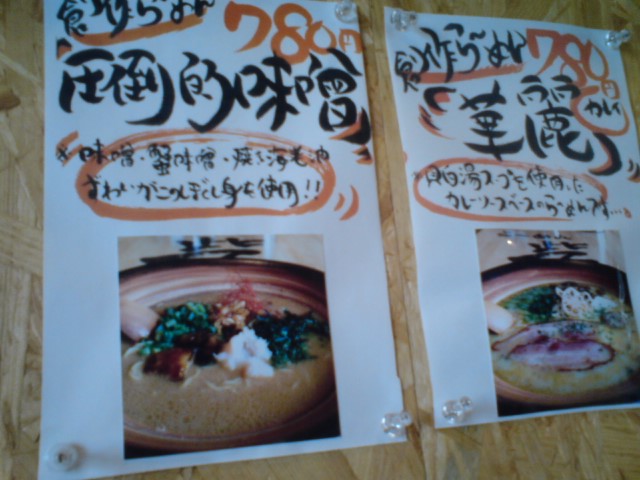 創作らーめん 780円
圧倒的味噌
※味噌・蟹味噌・焼き海老油
ずわいがにのほぐし身を使用!!
創作らーめん 780円
カレー
「華麗」
白湯スープを使用した
カレーソースベースのらーめんです…。